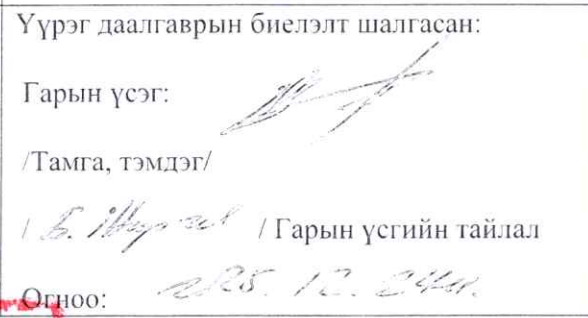 Үүрэг даалгаврын биелэлт шалгасан:
Гарын үсэг:
/Тамга, тэмдэг/
/ Б. / Гарын үсгийн тайлал
Огноо: 2025. 12. 24